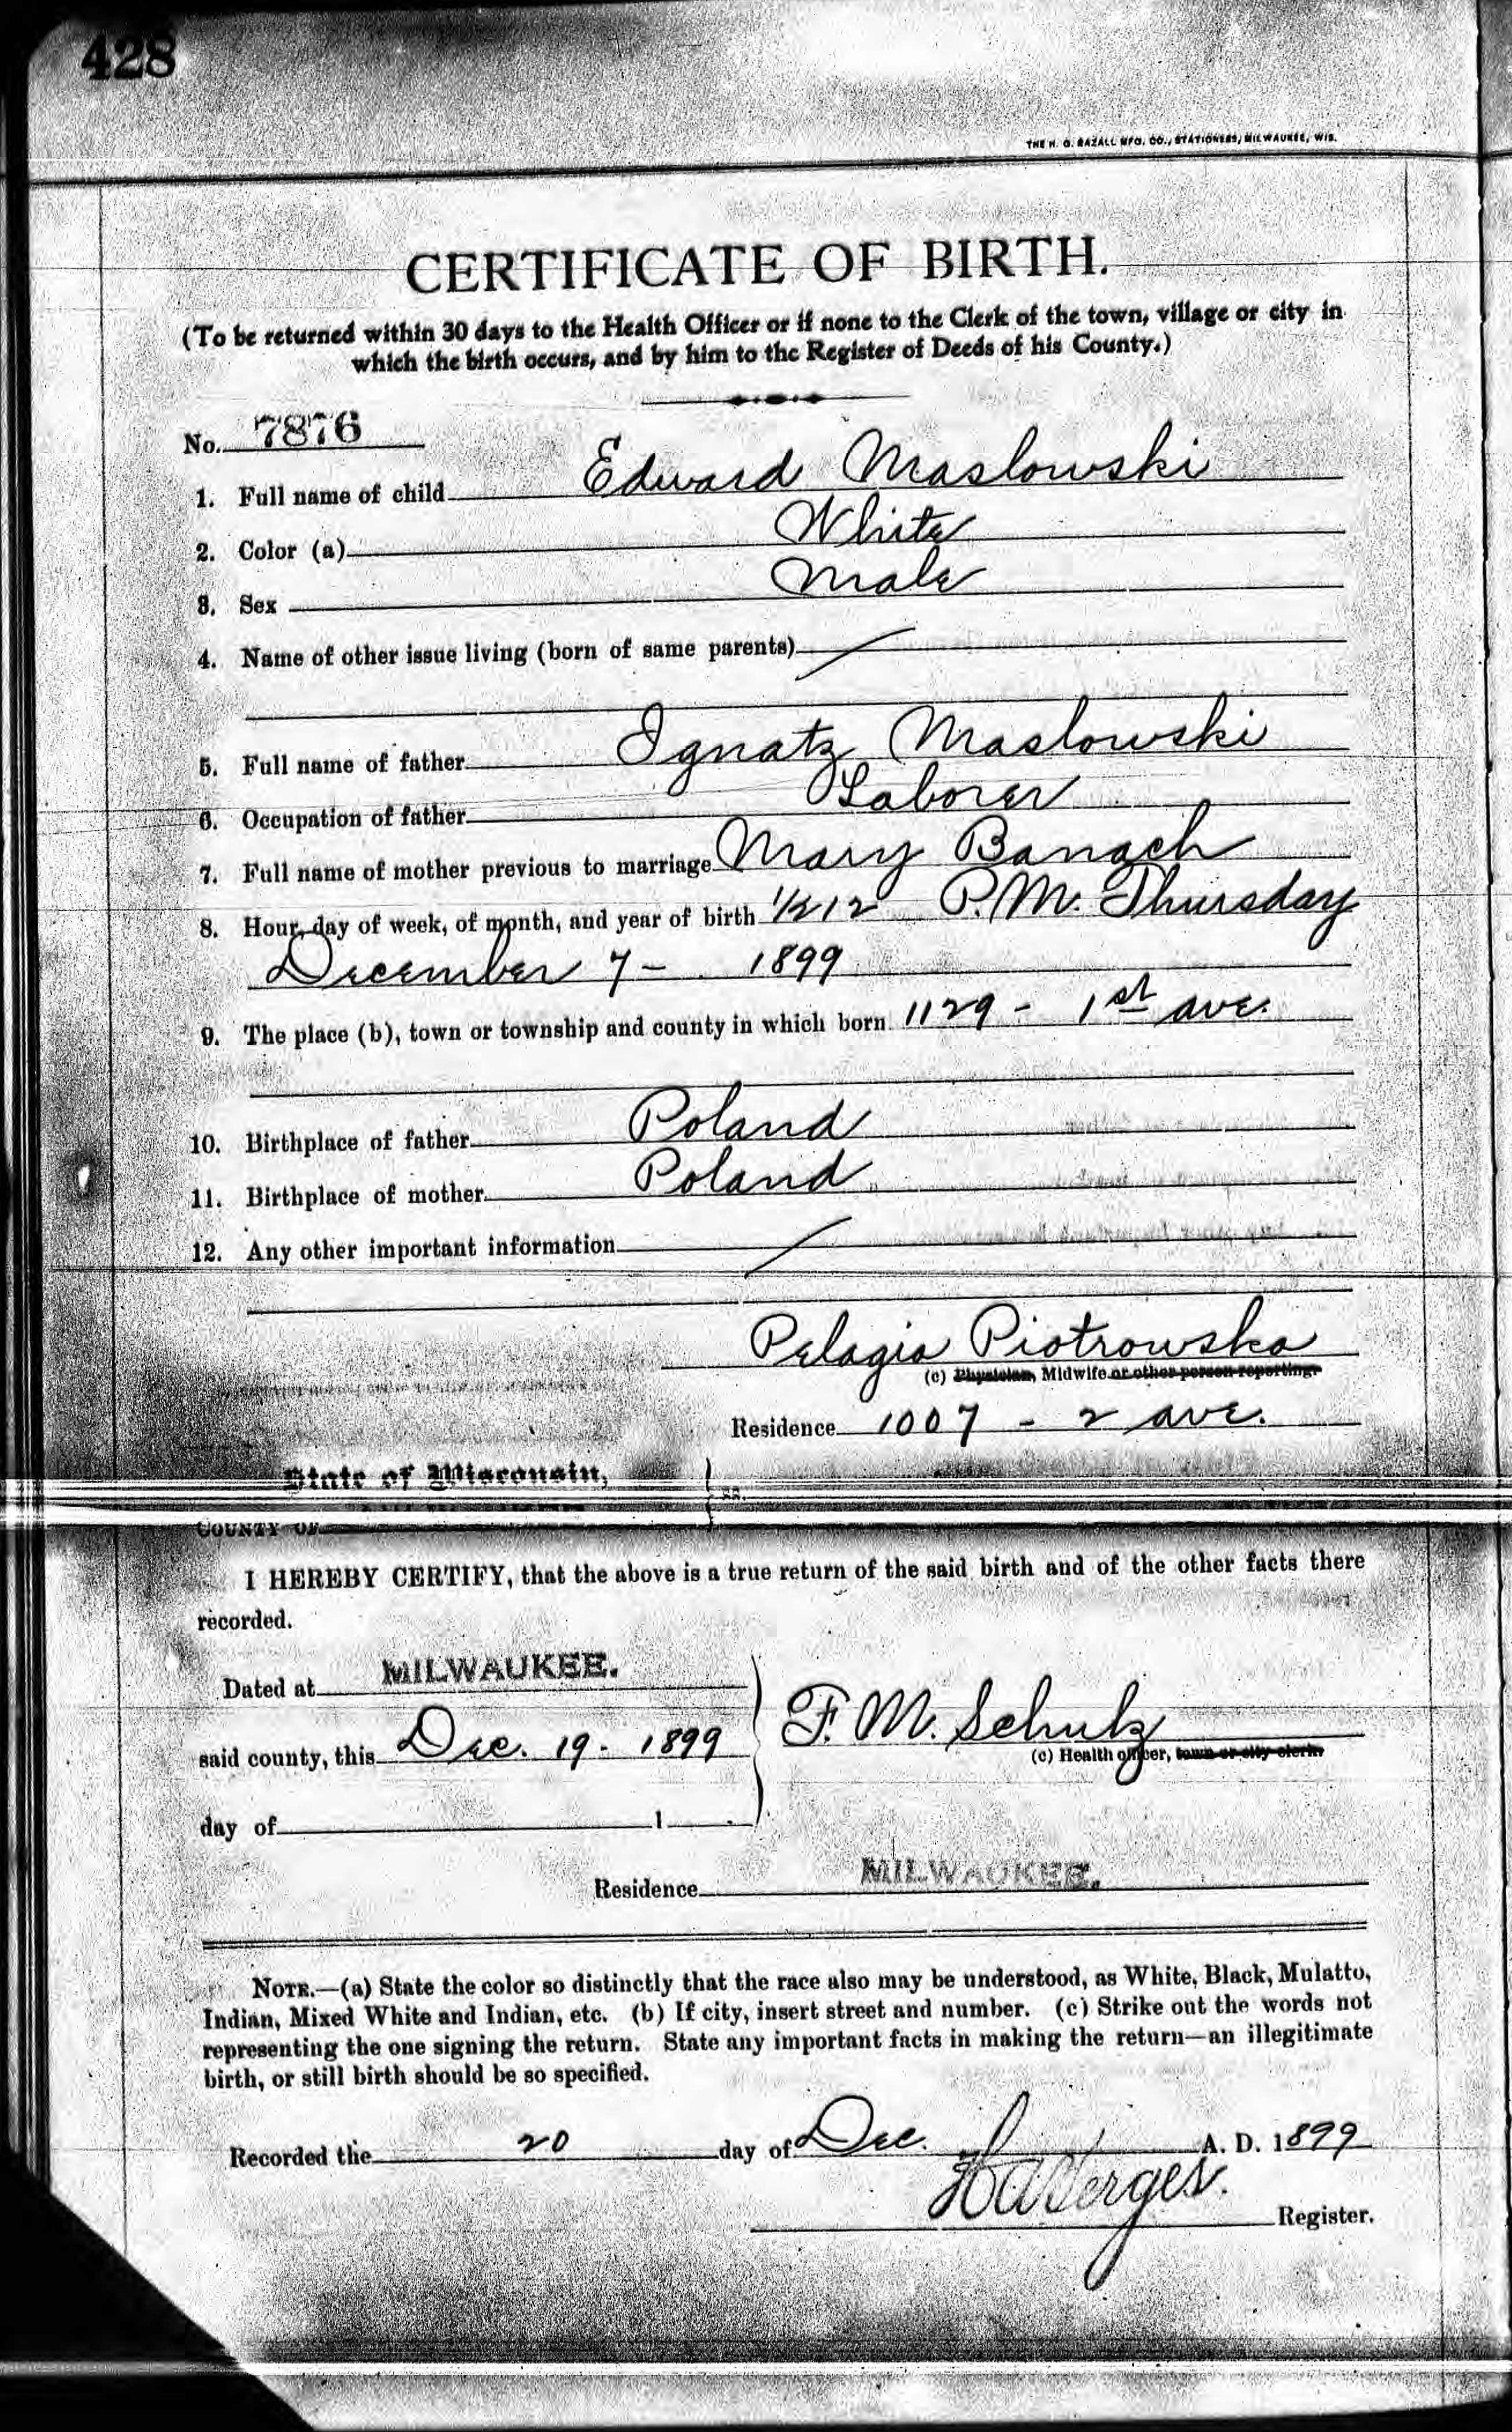 428
THE H. G. RAZALL MFG. CO., STATIONERS, MILWAUKEE, WIS.
CERTIFICATE OF BIRTH.
(To be returned within 30 days to the Health Officer or if none to the Clerk of the town, village or city in
which the birth occurs, and by him to the Register of Deeds of his County.)
No. 7876
1. Full name of child Edward Maslowski
2. Color (a) White
3. Sex Male
4. Name of other issue living (born of same parents)
5. Full name of father Ignatz Maslowski
6. Occupation of father Laborer
7. Full name of mother previous to marriage Mary Banach
8. Hour, day of week, of month, and year of birth 1/2 12 P.M. Thursday
December 7 - 1899
9. The place (b), town or township and county in which born 1129 - 1st ave.
10. Birthplace of father Poland
11. Birthplace of mother Poland
12. Any other important information
Pelagia Piotrowska
(c) Physician, Midwife or other person reporting.
Residence 1007 - 2 ave.
State of Wisconsin,
ss.
COUNTY OF
I HEREBY CERTIFY, that the above is a true return of the said birth and of the other facts there
recorded.
Dated at MILWAUKEE.
said county, this Dec. 19 - 1899
F. M. Schulz
(c) Health officer, town or city clerk.
day of 1
Residence MILWAUKEE.
NOTE.—(a) State the color so distinctly that the race also may be understood, as White, Black, Mulatto,
Indian, Mixed White and Indian, etc. (b) If city, insert street and number. (c) Strike out the words not
representing the one signing the return. State any important facts in making the return—an illegitimate
birth, or still birth should be so specified.
Recorded the 20 day of Dec. A. D. 1899
Register.